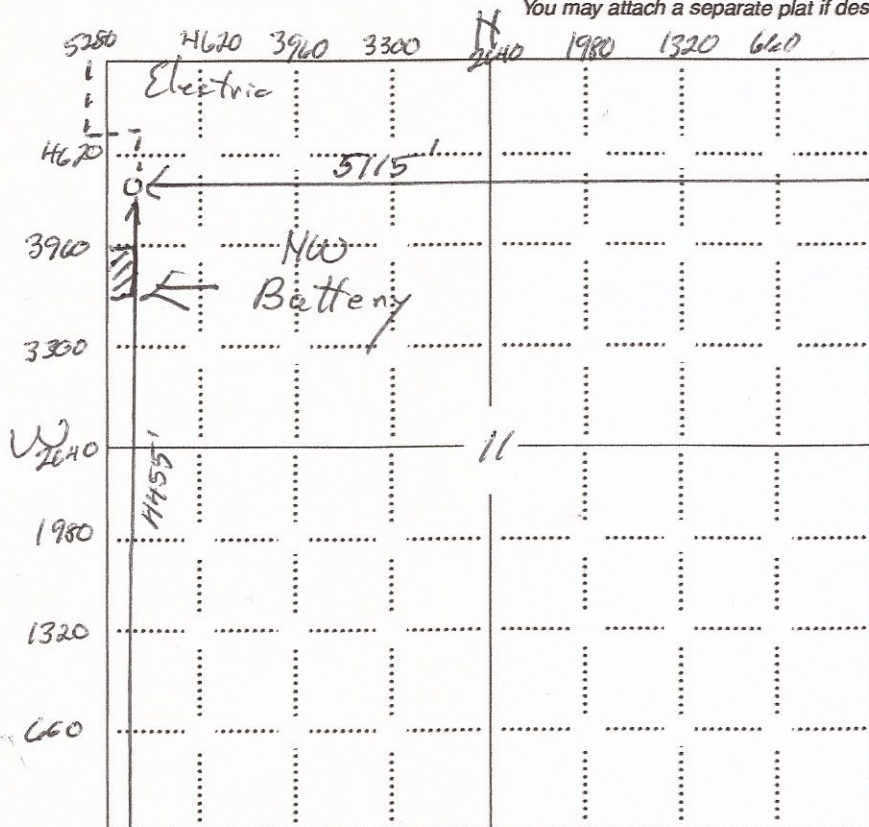 You may attach a separate plat if des
N
5280 4620 3960 3300 2640 1980 1320 660
Electric
4620
5115'
3960
NW
Battery
3300
W
2640
11
4455'
1980
1320
660